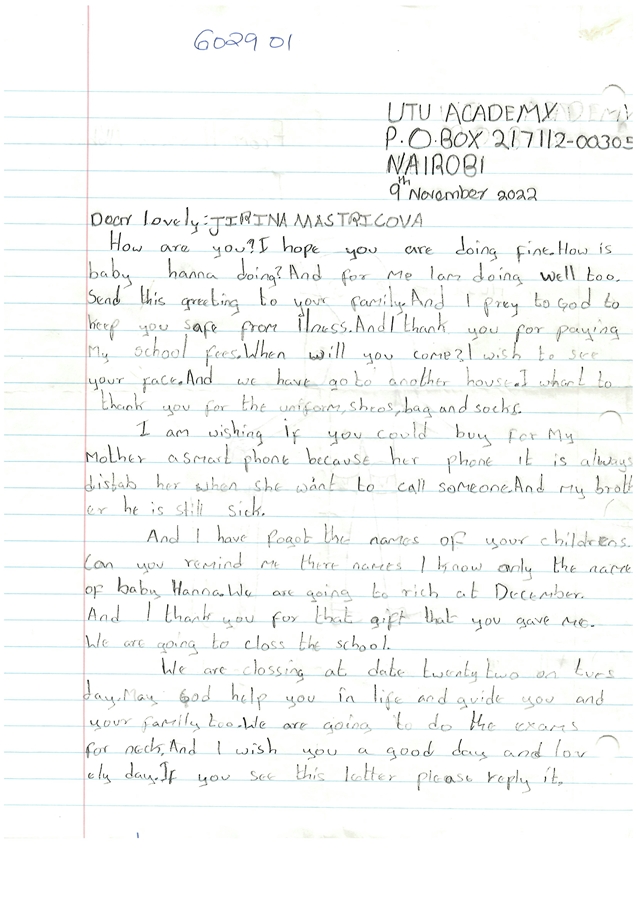 6029 01
UTU ACADEMY
P.O.BOX 217112-00305
NAIROBI
9th November 2022
Dear lovely:JIRINA MASTRICOVA
How are you?I hope you are doing fine.How is
baby hanna doing?And for me Iam doing well too.
Send this greeting to your family.And I prey to God to
keep you safe from ilness.And I thank you for paying
My school fees.When will you come?I wish to see
your face.And we have go to another house.I whant to
thank you for the uniform,sheos,bag and socks.
I am wishing if you could buy for My
Mother a smart phone because her phone it is always
distab her when she want to call someone.And my broth
er he is still sick.
And I have fogot the names of your childrens.
Can you remind me there names I know only the name
of baby Hanna.We are going to rich at December.
And I thank you for that gift that you gave me.
We are going to closs the school.
We are clossing at date twenty two on tues
day.May God help you in life and guide you and
your family too.We are going to do the exams
for nech.And I wish you a good day and lov
ely day.If you see this letter please reply it.